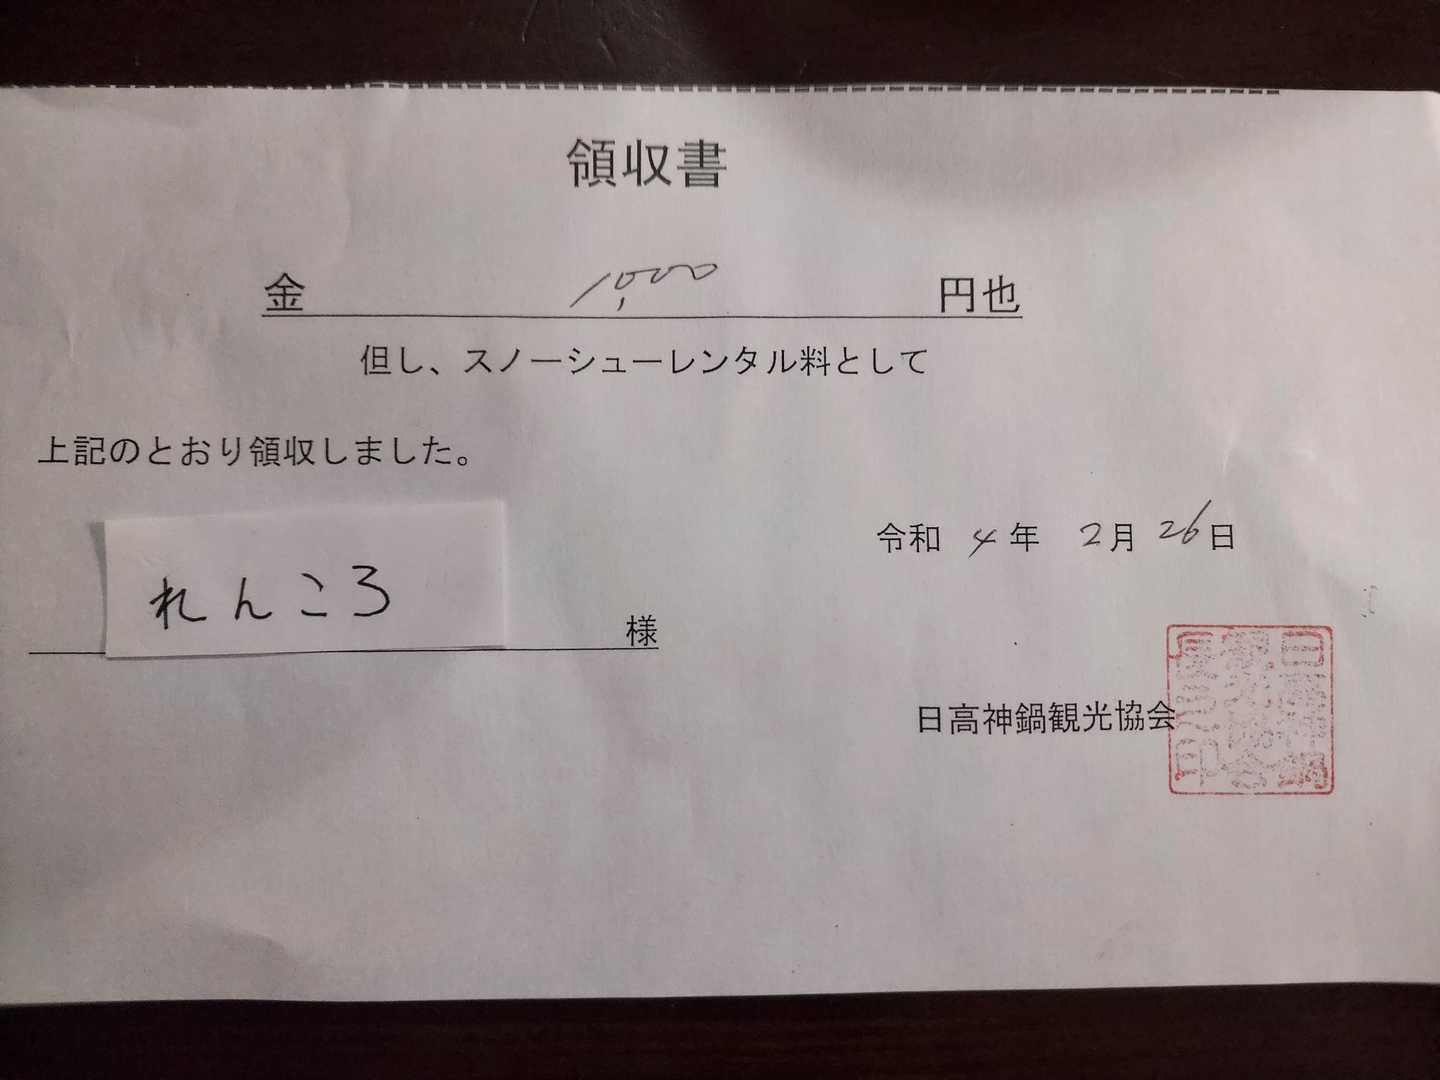 領収書
金 1,000 円也
但し、スノーシューレンタル料として
上記のとおり領収しました。
令和 4 年 2 月 26 日
れんころ 様
日高神鍋観光協会